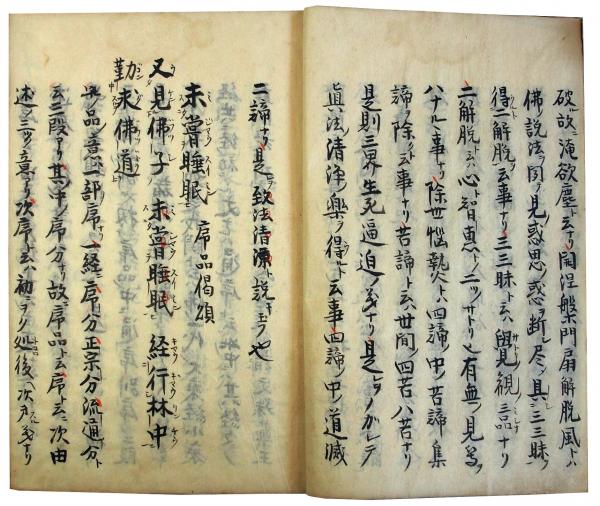 破故ニ淹欲塵ト云ナリ開涅槃門扇解脱風トハ
佛説法ヲ聞テ見惑思惑ヲ断シ尽シ具ニ三三昧ヲ
得ニ解脱ナリト云事ナリ三三昧ト云ハ覺観三品ナリ
二解脱ト云ハ心智恵トニツサトリ也有無ノ見
ハナルヽ事ナリ除世悩熱トハ四諦ノ中ノ苦諦集
諦ヲ除クト云事ナリ苦諦ト云ハ世間ノ四苦八苦ナリ
是則三界生死逼迫ノ義ナリ是ヲノガレテ
真法清浄ノ楽ヲ得ルト云事四諦ノ中ノ道滅
二諦ナリ是ヲ致法清涼ト説キ玉フ也
未嘗睡眠 序品偈頌
又見佛子 未嘗睡眠 経行林中
勤求佛道
此品ノ意ハ一部ノ序ナリ一経ニ序分正宗分流通分ト
云三段アリ其中ノ序分ナリ故序品ト云序ト云ハ次由
述ノ三ツノ意アリ次序ト云ハ初ニヲク処後ヘ次第ノ義ナリ